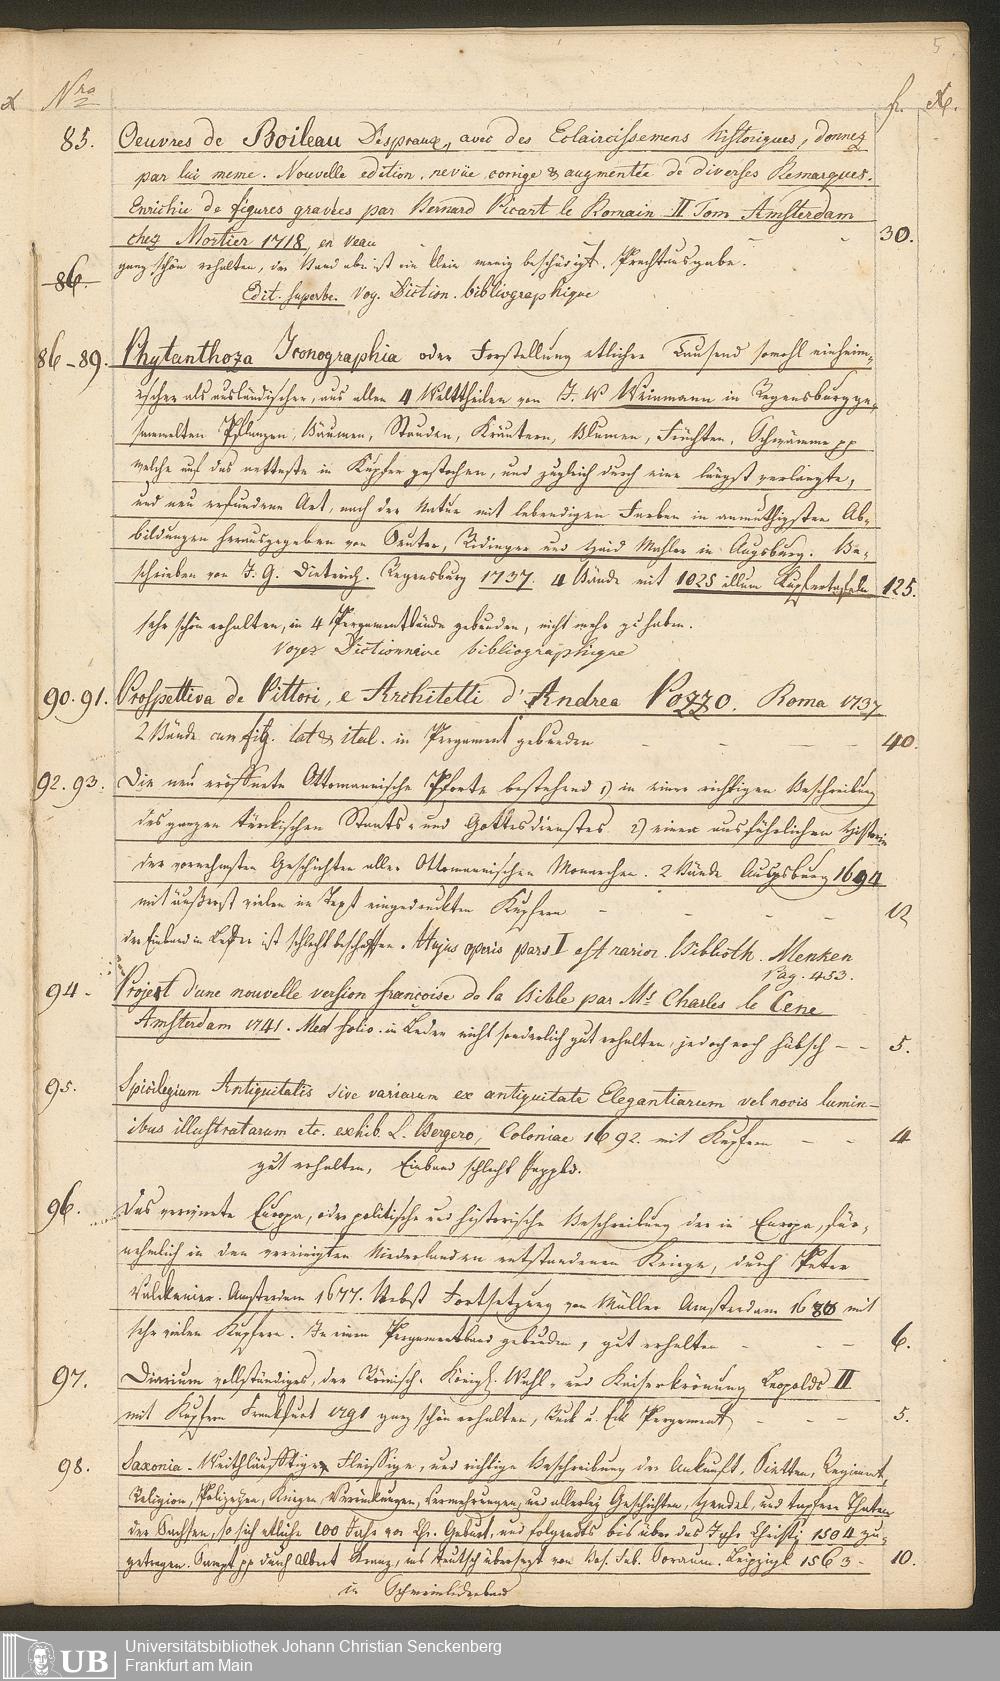 5
x Nro fr. Xr.
85. Oeuvres de Boileau Despraux, avec des Eclaircissemens historiques, donnez
par lui meme. Nouvelle edition, revüe corrige & augmentée de diverses Remarques.
Enrichie de figures gravées par Bernard Picart le Romain II Tom Amsterdam
chez Mortier 1718 en Veau - - - 30.
ganz schön erhalten, der Band aber ist ein klein wenig beschädigt. Prachtausgabe.
86.
Edit. superbe. Voy. Diction. bibliographique
86-89. Phytanthoza Iconographia oder Forstellung etlicher Tausend sowohl einheim-
ischer als ausländischer, aus allen 4 Welttheilen von J. W Weinmann in Regensburg ge-
sammelten Pflanzen, Bäumen, Stauden, Kräutern, Blumen, Früchten, Schwämme pp
welche auf das netteste in Kupfer gestochen, und zugleich durch eine längst verlangte,
und neu erfundene Art, nach der Natur mit lebendigen Farben in anmuthigsten Ab-
bildungen herausgegeben von Seuter, Ridinger und Haid Mahler in Augsburg. Be-
schrieben von J. G. Dieterich. Regensburg 1737. 4 Bände mit 1025 illum Kupfertafeln 125.
sehr schön erhalten, in 4 Pergamentbände gebunden, nicht mehr zu haben.
Voyez Dictionnaire bibliographique
90. 91. Prospettiva de Pittori, e Architetti d'Andrea Pozzo. Roma 1737
2 Bände cum fig. lat & ital. in Pergament gebunden - - - - 40.
92. 93. Die neu eröffnete Ottomannische Pforte bestehend 1) in einer richtigen Beschreibung
des ganzen türckischen Staats- und Gottesdienstes 2) einer ausführlichen Historie
der vornehmsten Geschichten aller Ottomannischen Monarchen. 2 Bände Augsburg 1694
mit äußerst vielen in Text eingedruckten Kupfern - - - - 12
der Einband in Leder ist schlecht beschaffen. Hujus operis pars I est rarior. Biblioth. Menken
Pag. 453.
94 - Projekt d'une nouvelle version françoise de la Bible par Mr Charles le Cene
Amsterdam 1741. Med folio. in Leder nicht sonderlich gut erhalten, jedoch noch hübsch - - 5.
95. Spicilegium Antiquitatis sive variarum ex antiquitate Elegantiarum vel novis lumin-
ibus illustratarum etc. exhib. L. Bergero, Coloniae 1692. mit Kupfern - - 4
gut erhalten, Einband schlecht Pappbd.
96. Das verwirrte Europa, oder politische und historische Beschreibung der in Europa, für-
nehmlich in den vereinigten Niederlanden entstandenen Kriege, durch Peter
Valckenier. Amsterdam 1677. Nebst Fortsetzung von Müller Amsterdam 1680 mit
sehr vielen Kupfern. In einem Pergamentband gebunden, gut erhalten - - - 6.
97. Diarium vollständiges, der Römisch- Königl. Wahl- und Kaiserkrönung Leopolds II
mit Kupfern Frankfurt 1791 ganz schön erhalten, Ruck u. Eck Pergament - - - 5.
98. Saxonia - Weithläufftige, Fleissige, und richtige Beschreibung der Ankunft, Sietten, Regiment,
Religion, Polizeyen, Kriegen, Vermehrungen, und allerley Geschichten, Hendel, und tapfere Thaten
der Sachsen, so sich etliche 100 Jahr vor Ch. Geburt, und folgendts bis über das Jahr Christi 1504 zu-
getragen. Sampt pp durch Albert Kranz, ins teutsch übersetzt von Bas. Fab. Soraum. Leipzigk 1563 - 10.
in Schweinslederband
Universitätsbibliothek Johann Christian Senckenberg
Frankfurt am Main
UB